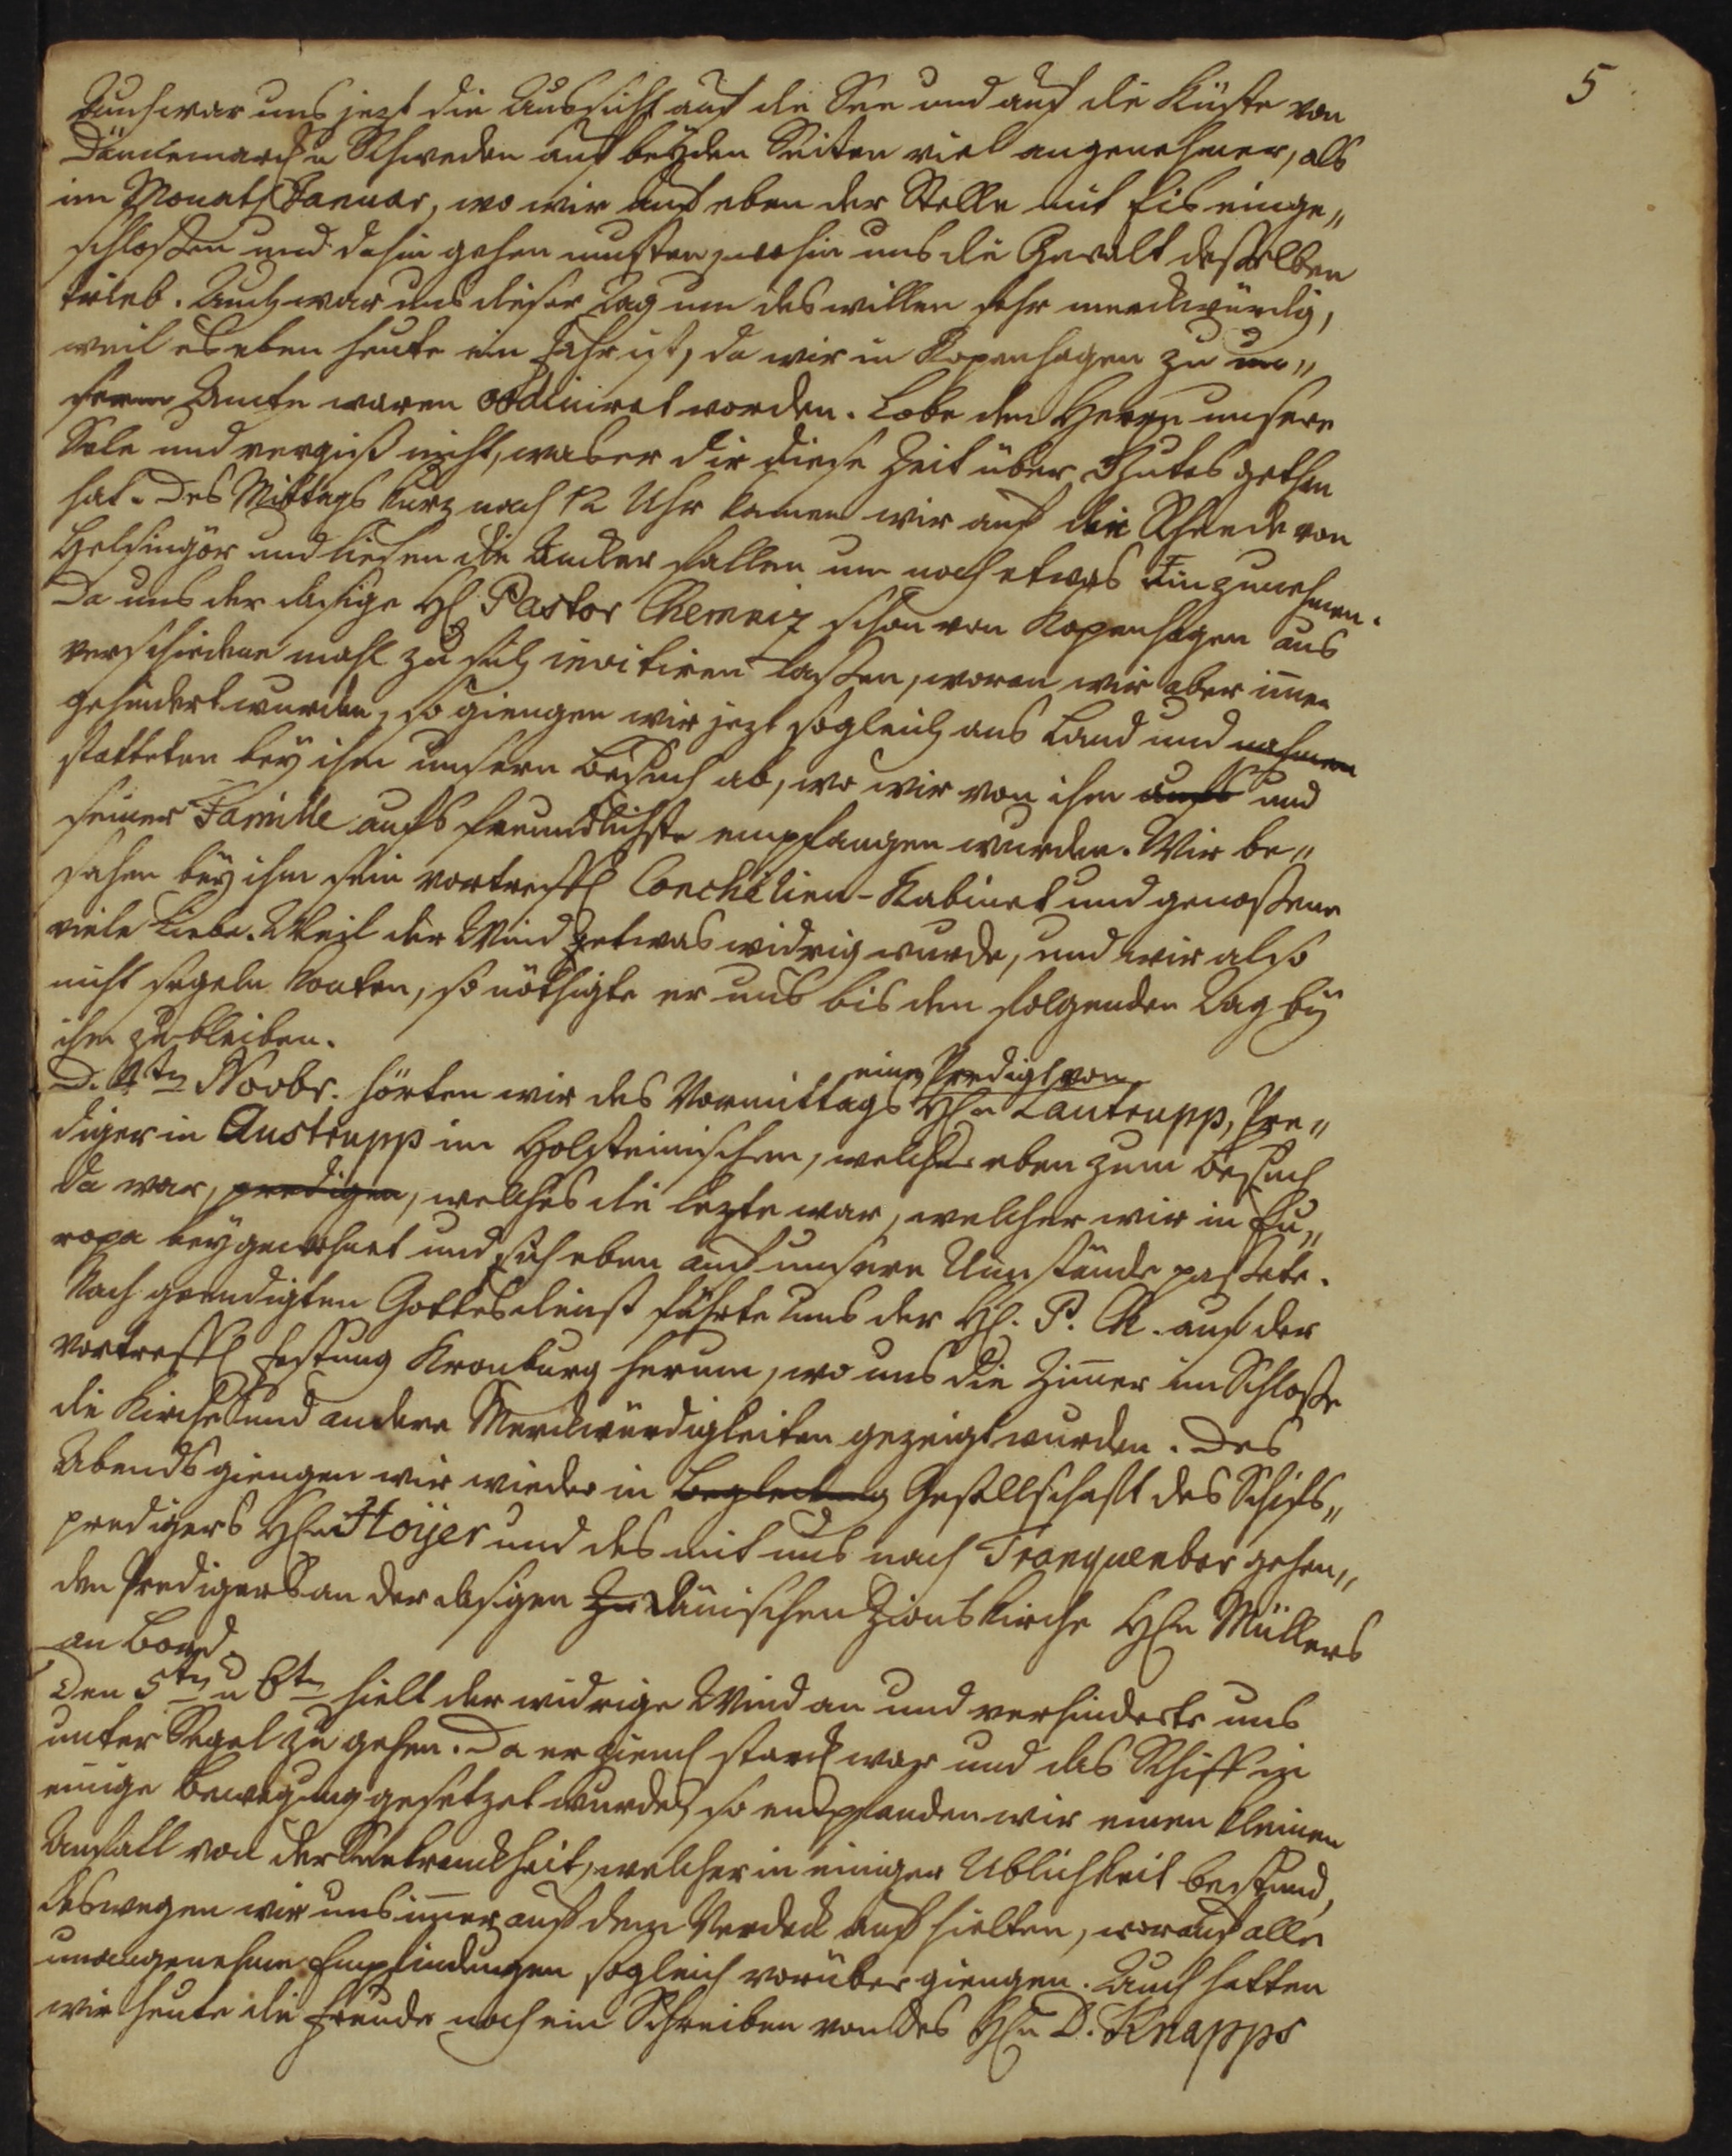 5
Auch war uns jezt die Aussicht auf die See und auf die Küste von
Dännemarck u Schweden auf beyden Seiten viel angenehmer, als
im Monath Januar, wo wir auf eben der Stelle mit Eis einge„
schloßen und dahin gehen musten, wohin uns die Gewalt deßelben
trieb. Auch war uns dieser Tag um deswillen sehr merckwürdig,
weil es eben heute ein Jahr ist, da wir in Kopenhagen zu un„
serm Amte waren ordiniret worden. Lobe den Herrn unsere
Sele und vergiß nicht, was er dir diese Zeit über Gutes gethan
hat. Des Mittags kurz nach 12 Uhr kamen wir auf die Rheede von
Helsingör und ließen die Ancker fallen um noch etwas einzunehmen.
Da uns der dasige H. Pastor Chemniz schon von Kopenhagen aus
verschiedene mahl zu sich invitiren laßen, woran wir aber im̄er
gehindert wurden, so giengen wir jezt sogleich ans Land und nahmen
statteten bey ihm unsern Besuch ab, wo wir von ihm aufs und
seiner Famille aufs freundlichste empfangen wurden. Wir be„
sahen bey ihm sein vortreffl Conchilien-Kabinet und genoßen
viele Liebe. Weil der Wind etwas widrig wurde, und wir also
nicht segeln konten, so nöthigte er uns bis den folgenden Tag bey
ihm zu bleiben.
eine Predigt von
D. 4ten Novbr. hörten wir des Vormittags Hn Lautrupp, Pre„
diger in Austrupp im Holsteinischen, welcher eben zum Besuch
da war, predigen, welches die lezte war, welcher wir in Eu„
ropa beygewohnet und sich eben auf unsere Umstände paßete.
Nach geendigten Gottesdienst führte uns der H. P. Ch. auf der
vortreffl Festung Kronburg herum, wo uns die Zim̄er im Schloße
die Kirche und andere Merckwürdigkeiten gezeigt wurden. Des
Abends giengen wir wieder in Begleitung Gesellschaft des Schifs„
predigers Hn Hoÿer und des mit uns nach Tranquenbar gehen„
den Predigers an der dasigen Zi Dänischen Zionskirche Hn Müllers
an Bord.
Den 5ten u 6ten hielt der widrige Wind an und verhinderte uns
unter Segel zu gehen. Da er ziemℓ starck war und das Schiff in
einige Bewegung gesetzet wurde, so empfanden wir einen kleinen
Anfall von der Seekranckheit, welcher in einiger Ublichkeit bestund,
deswegen wir uns im̄er auf dem Verdeck auf hielten, worauf alle
unangenehme Empfindungen sogleich vorüber giengen. Auch hatten
wir heute die Freude noch ein Schreiben von des Hn D. Knapps